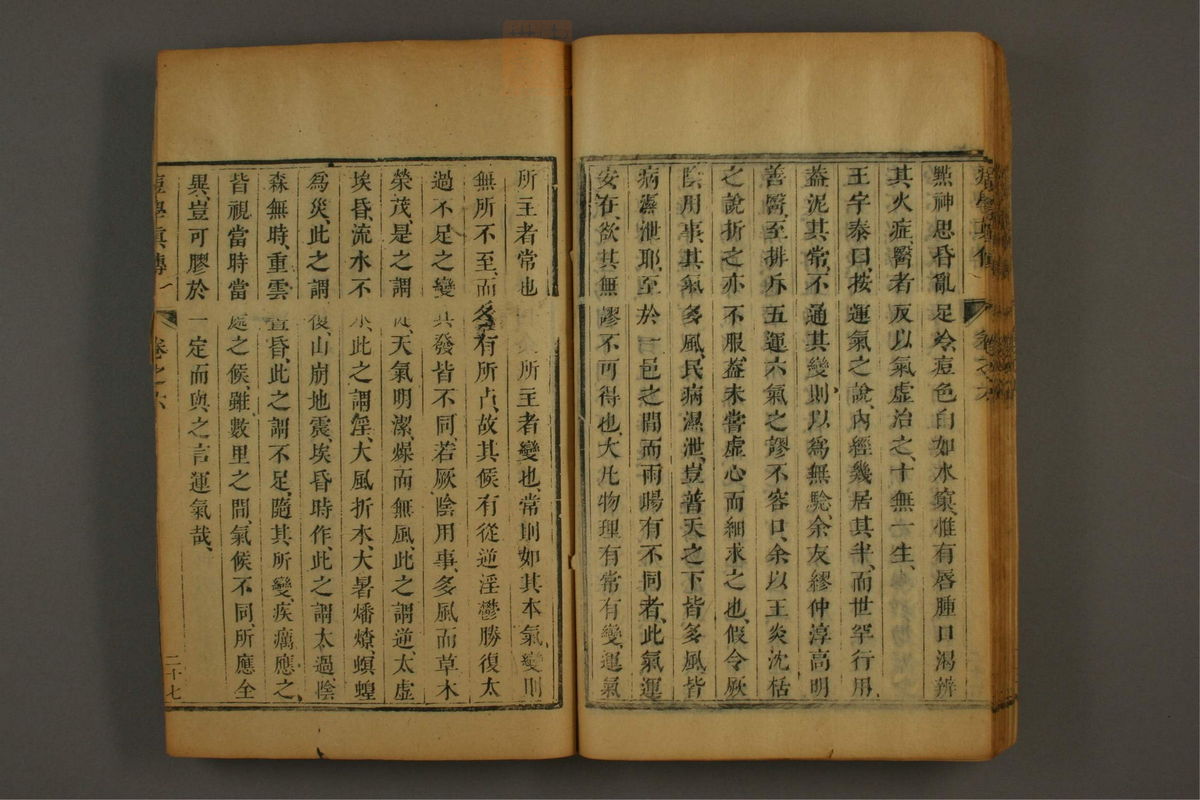 點神思昏亂足冷痘色白如水窠惟有唇腫口渴辨
其火症醫者反以氣虛治之十無一生
王宇泰曰按運氣之說內經幾居其半而世罕行用
葢泥其常不通其變則以爲無驗余友繆仲淳高明
善醫至排斥五運六氣之謬不容口余以王炎沈栝
之說折之亦不服葢未嘗虛心而細求之也假令厥
陰用事其氣多風民病濕泄豈普天之下皆多風皆
病濕泄耶至於一邑之間而雨暘有不同者此氣運
安在欲其無謬不可得也大凡物理有常有變運氣
所主者常也所主者變也常則如其本氣變則
無所不至而各有所占故其候有從逆淫鬱勝復太
過不足之變其發皆不同若厥陰用事多風而草木
榮茂是之謂從天氣明潔燥而無風此之謂逆太虛
埃昏流水不氷此之謂淫大風折木大暑燔燎螟蝗
爲災此之謂復山崩地震埃昏時作此之謂太過陰
森無時重雲晝昏此之謂不足隨其所變疾癘應之
皆視當時當處之候雖數里之間氣候不同所應全
異豈可膠於一定而與之言運氣哉
痘學眞傳 卷之六 二十七